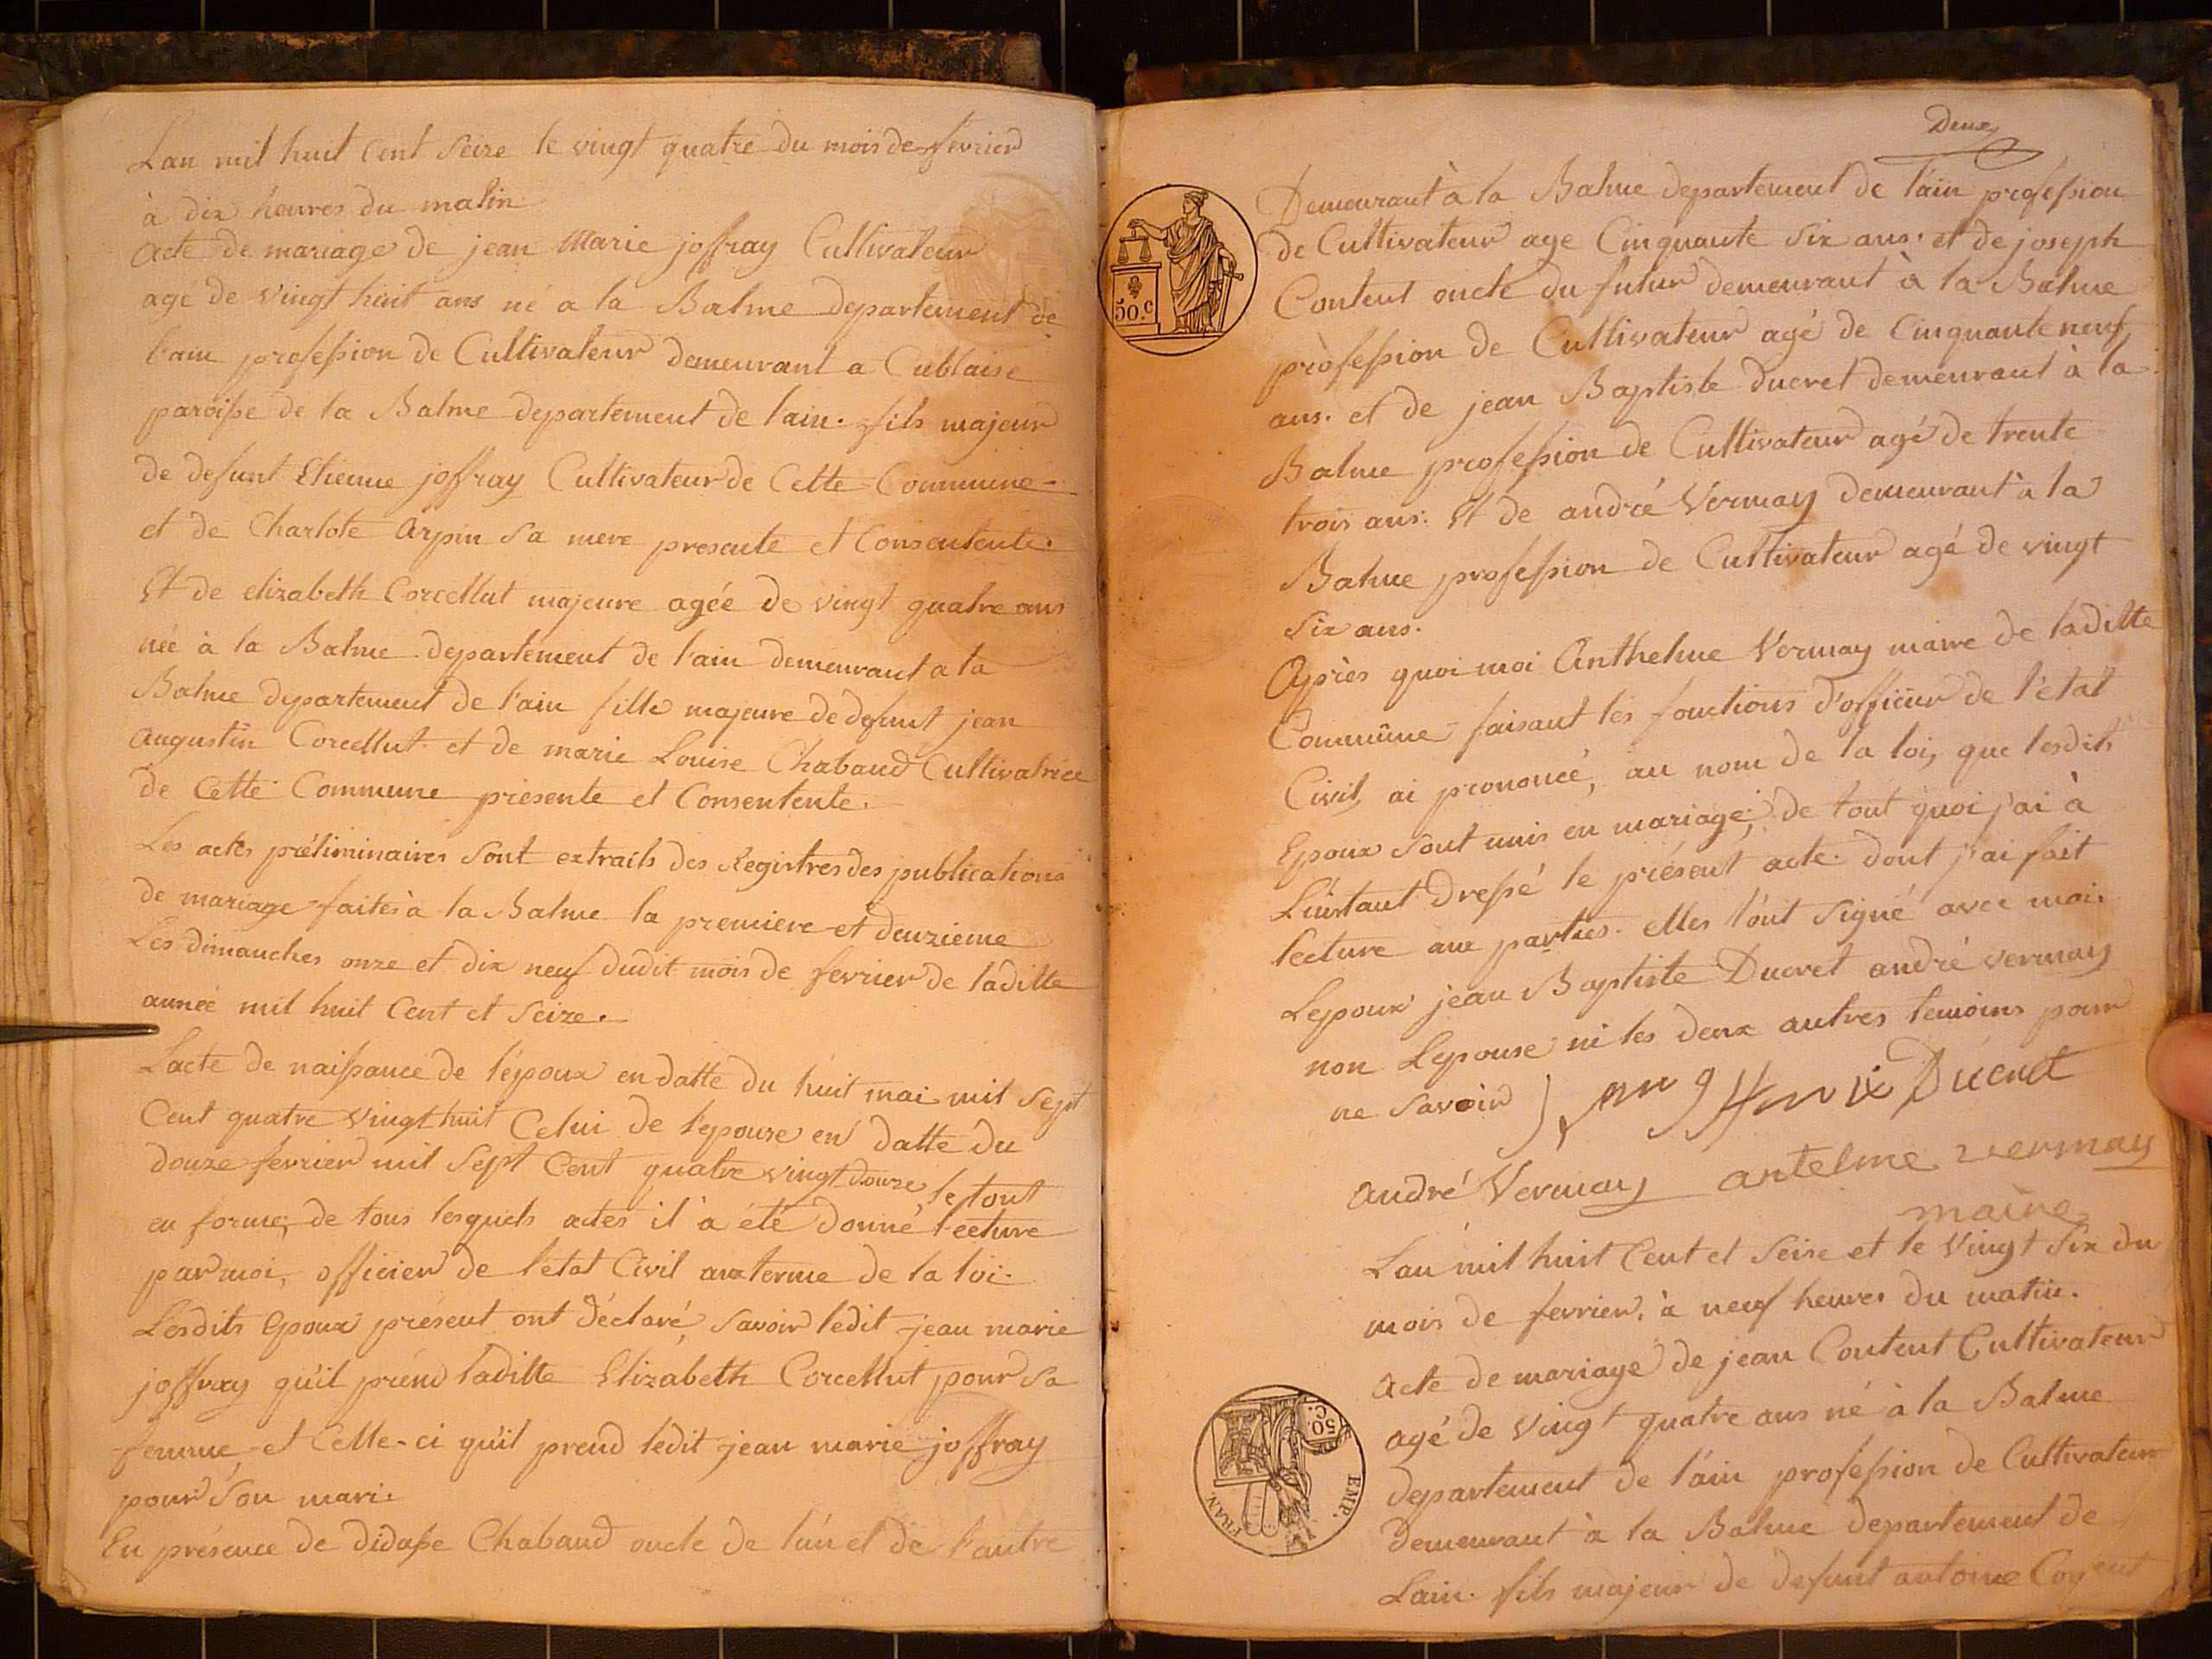 Lan mil huit Cent Seize le vingt quatre du mois de fevrier
à dix heures du matin
Acte de mariage de jean Marie joffray Cultivateur
agé de vingt huit ans né a la Balme departement de
l'ain profession de Cultivateur demeurant a Cublaise
paroisse de la Balme departement de lain. fils majeur
de defunt Etienne joffray Cultivateur de Cette Commune
et de Charlote Arpin Sa mere presente et Consentente.
Et de elizabeth Corcellut majeure agée de vingt quatre ans
née à la Balme departement de l'ain demeurant a la
Balme departement de l'ain fille majeure de defunt jean
Augustin Corcellut et de marie Louise Chabaud Cultivatrice
de Cette Commune présente et Consentente.
Les actes préliminaires Sont extraits des Registres des publications
de mariage faites à la Balme la premiere et deuzieme
Les dimanches onze et dix neuf dudit mois de fevrier de laditte
année mil huit Cent et Seize.
Lacte de naissance de l'époux en datte du huit mai mil Sept
Cent quatre vingt huit Celui de l'epouse en datte du
douze fevrier mil Sept Cent quatre vingt douze le tout
en forme; de tous lesquels actes il à été donné lecture
par moi, officier de létat Civil aux terme de la loi.
Lesdits Epoux présent ont déclaré, Savoir ledit jean marie
joffray qu'il prend laditte Elizabeth Corcellut pour Sa
femme, et Celle-ci qu'il prend ledit jean marie joffray
pour Son mari.
En présence de didasse Chabaud oncle de l'un et de l'autre
Deux
Demeurant à la Balme departement de l'ain profession
de Cultivateur age Cinquante Six ans. et de joseph
Content oncle du futur demeurant à la Balme
profession de Cultivateur agé de Cinquante neuf
ans. et de jean Baptiste ducret demeurant à la
Balme profession de Cultivateur agé de trente
trois ans. Et de andré Vermay demeurant à la
Balme profession de Cultivateur agé de vingt
Six ans.
Après quoi moi Anthelme Vermay maire de laditte
Commune faisant les fonctions d'officier de l'état
Civil, ai prononcé, au nom de la loi, que lesdits
Epoux Sont unis en mariage; de tout quoi j'ai à
L'instant dressé le présent acte. dont j'ai fait
lecture aux parties. elles l'ont Signé avec moi.
Lepoux jean Baptiste Ducret andré vermay
non Lepouse ni les deux autres temoins pour
ne Savoir Ducret
André Vermay antelme vermay
maire
Lan mil huit Cent et Seize et le Vingt Six du
mois de fevrier, à neuf heures du matin.
Acte de mariage de jean Content Cultivateur
agé de Vingt quatre ans né à la Balme
departement de l'ain profession de Cultivateur
demeurant à la Balme departement de
Lain. fils majeur de defunt antoine Content
50.C
50. C.
EMP.
FRAN.